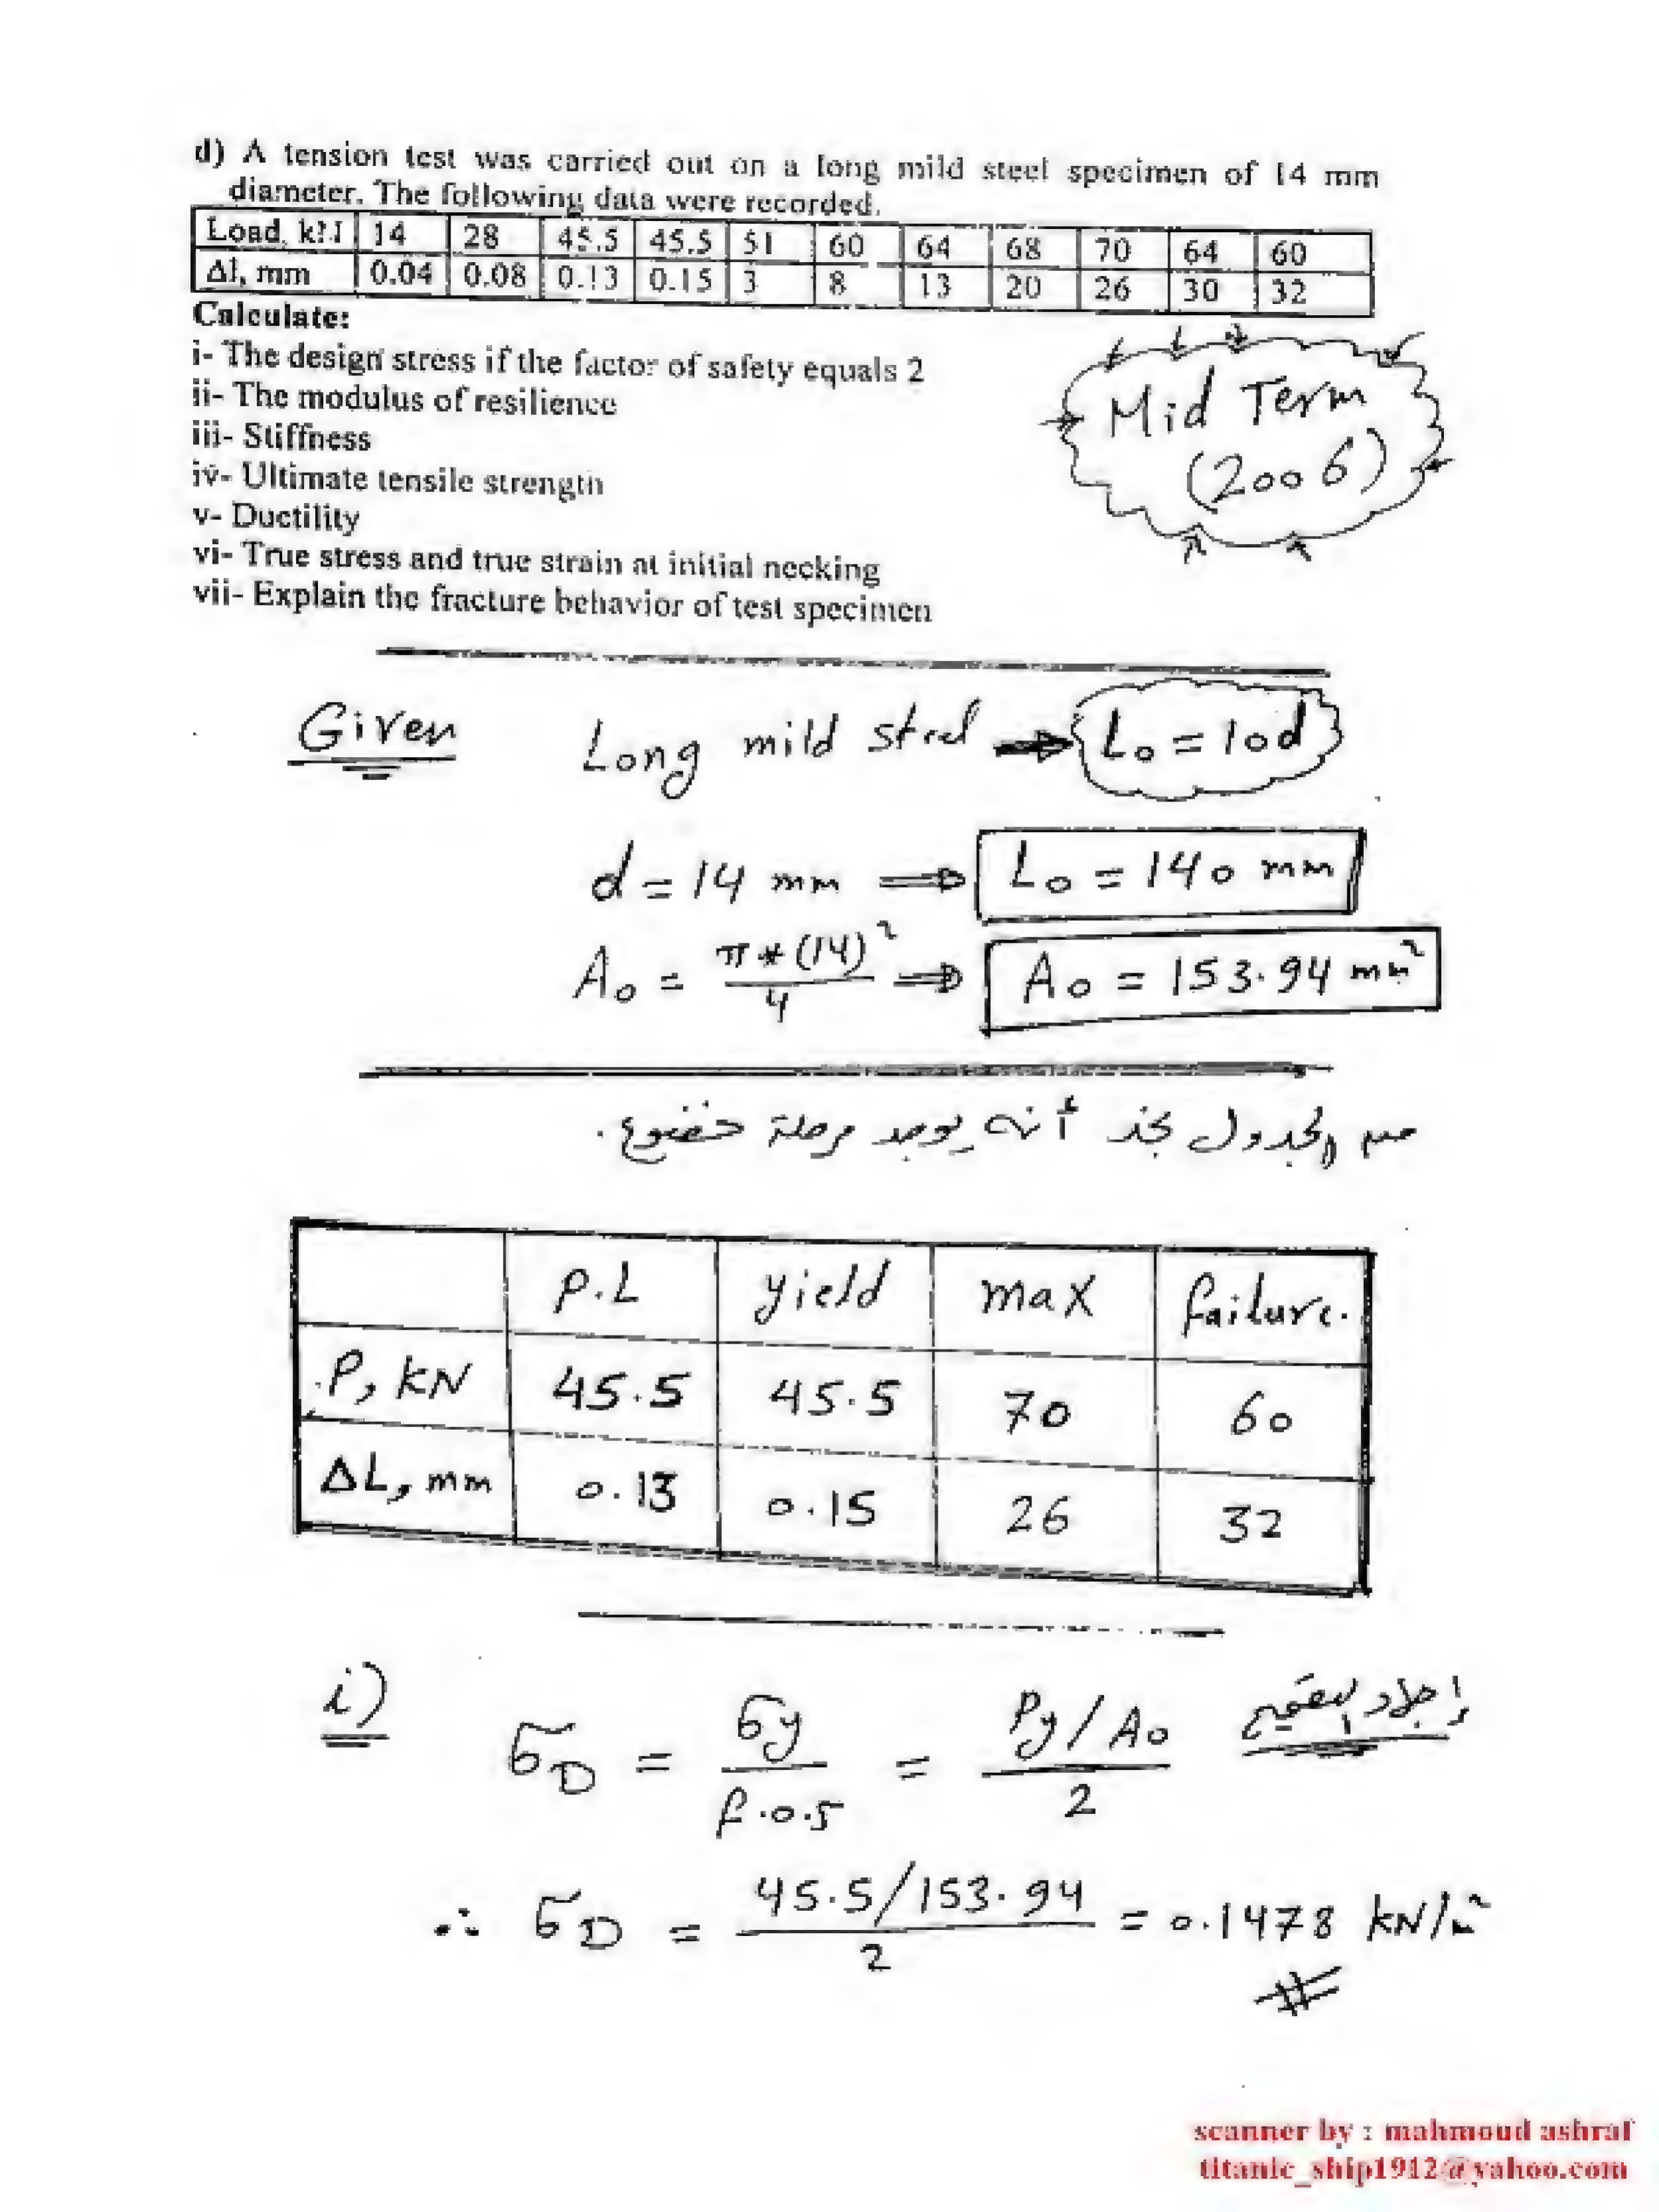 d) A tension test was carried out on a long mild steel specimen of 14 mm
diameter. The following data were recorded.
Load, kN 14 28 45.5 45.5 51 60 64 68 70 64 60
Δl, mm 0.04 0.08 0.13 0.15 3 8 13 20 26 30 32
Calculate:
i- The design stress if the factor of safety equals 2
ii- The modulus of resilience
iii- Stiffness
iv- Ultimate tensile strength
v- Ductility
vi- True stress and true strain at initial necking
vii- Explain the fracture behavior of test specimen
Mid Term
(2006)
Given Long mild steel → L₀ = 10d
d = 14 mm ⇒ L₀ = 140 mm
A₀ = π*(14)²/4 ⇒ A₀ = 153.94 mm²
من الجدول نجد أنه يوجد مرحلة خضوع.
P.L yield max failure.
P, kN 45.5 45.5 70 60
ΔL, mm 0.13 0.15 26 32
i) σD = σy / f.o.s = Py/A₀ / 2 إجهاد التصميم
∴ σD = 45.5/153.94 / 2 = 0.1478 kN/m²
scanner by : mahmoud ashraf
titanic_ship1912@yahoo.com